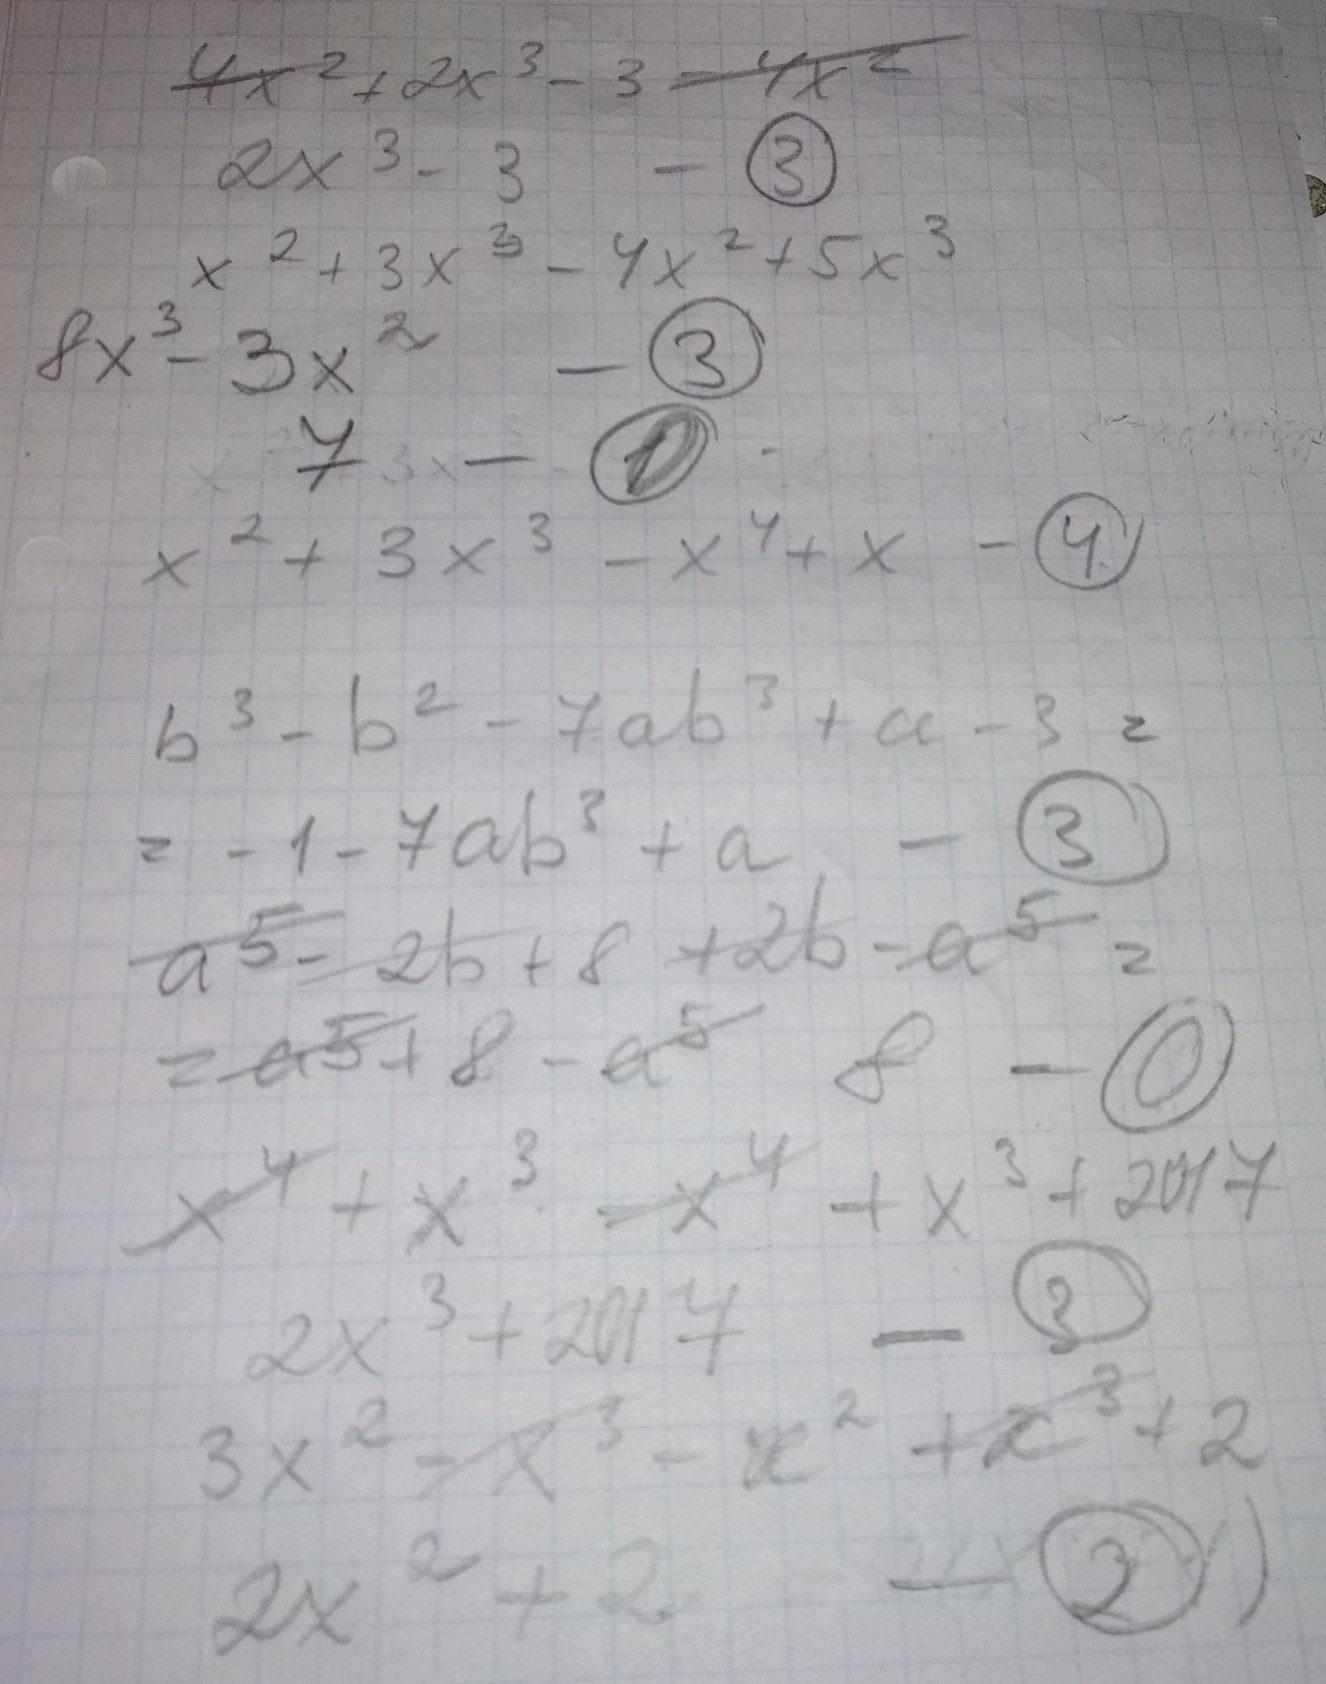 4x² + 2x³ - 3 - 4x²
2x³ - 3 - 3
x² + 3x³ - 4x² + 5x³
8x³ - 3x² - 3
7 -
x² + 3x³ - x⁴ + x - 4
b³ - b² - 7ab³ + a - 3 =
= -1 - 7ab³ + a - 3
a⁵ - 2b + 8 + 2b - a⁵ =
= a⁵ + 8 - a⁵ 8 - 0
x⁴ + x³ - x⁴ + x³ + 2017
2x³ + 2017 - 3
3x² - x³ - x² + x³ + 2
2x² + 2 - 2 )